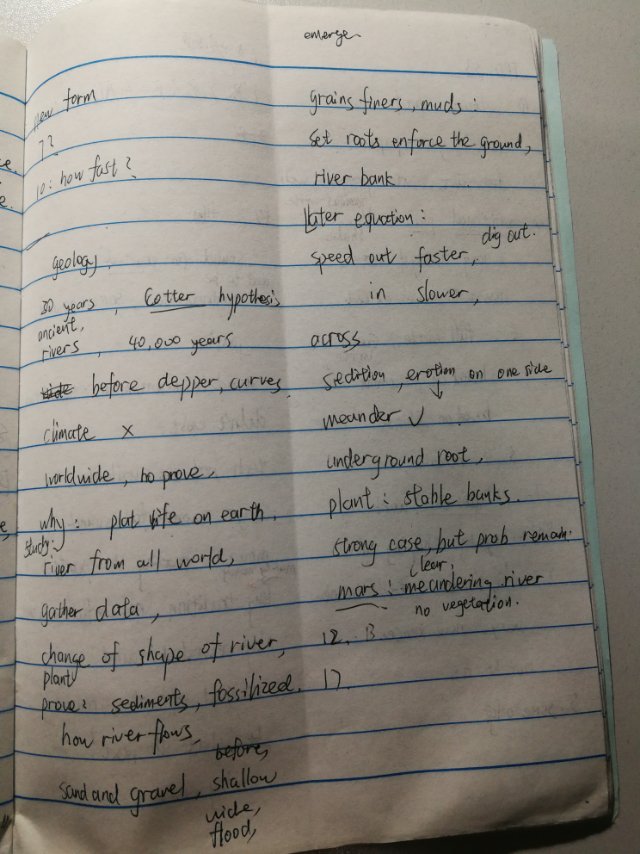 emerge
new form
7?
10: how fast?
geology,
30 years, Cotter hypothesis
ancient,
rivers, 40,000 years
before depper, curves.
climate ×
worldwide, no prove,
why: plat life on earth.
study:
river from all world,
gather data,
change of shape of river,
plant
prove: sediments, fossilized.
how river flows,
before,
sand and gravel, shallow
wide,
flood,
grains finers, muds:
set roots enforce the ground,
river bank
Later equation:
dig out.
speed out faster,
in slower,
across
sedition, erotion on one side
meander ✓
underground root,
plant: stable banks.
strong case, but prob remain.
clear
mars: meundering river
no vegetation.
12. B
17.